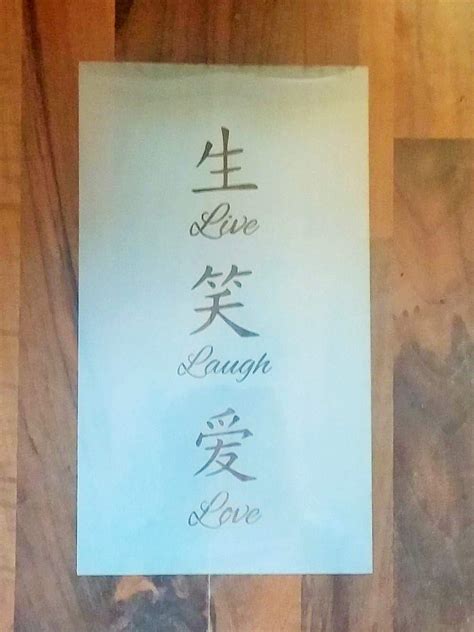 生
Live
笑
Laugh
爱
Love